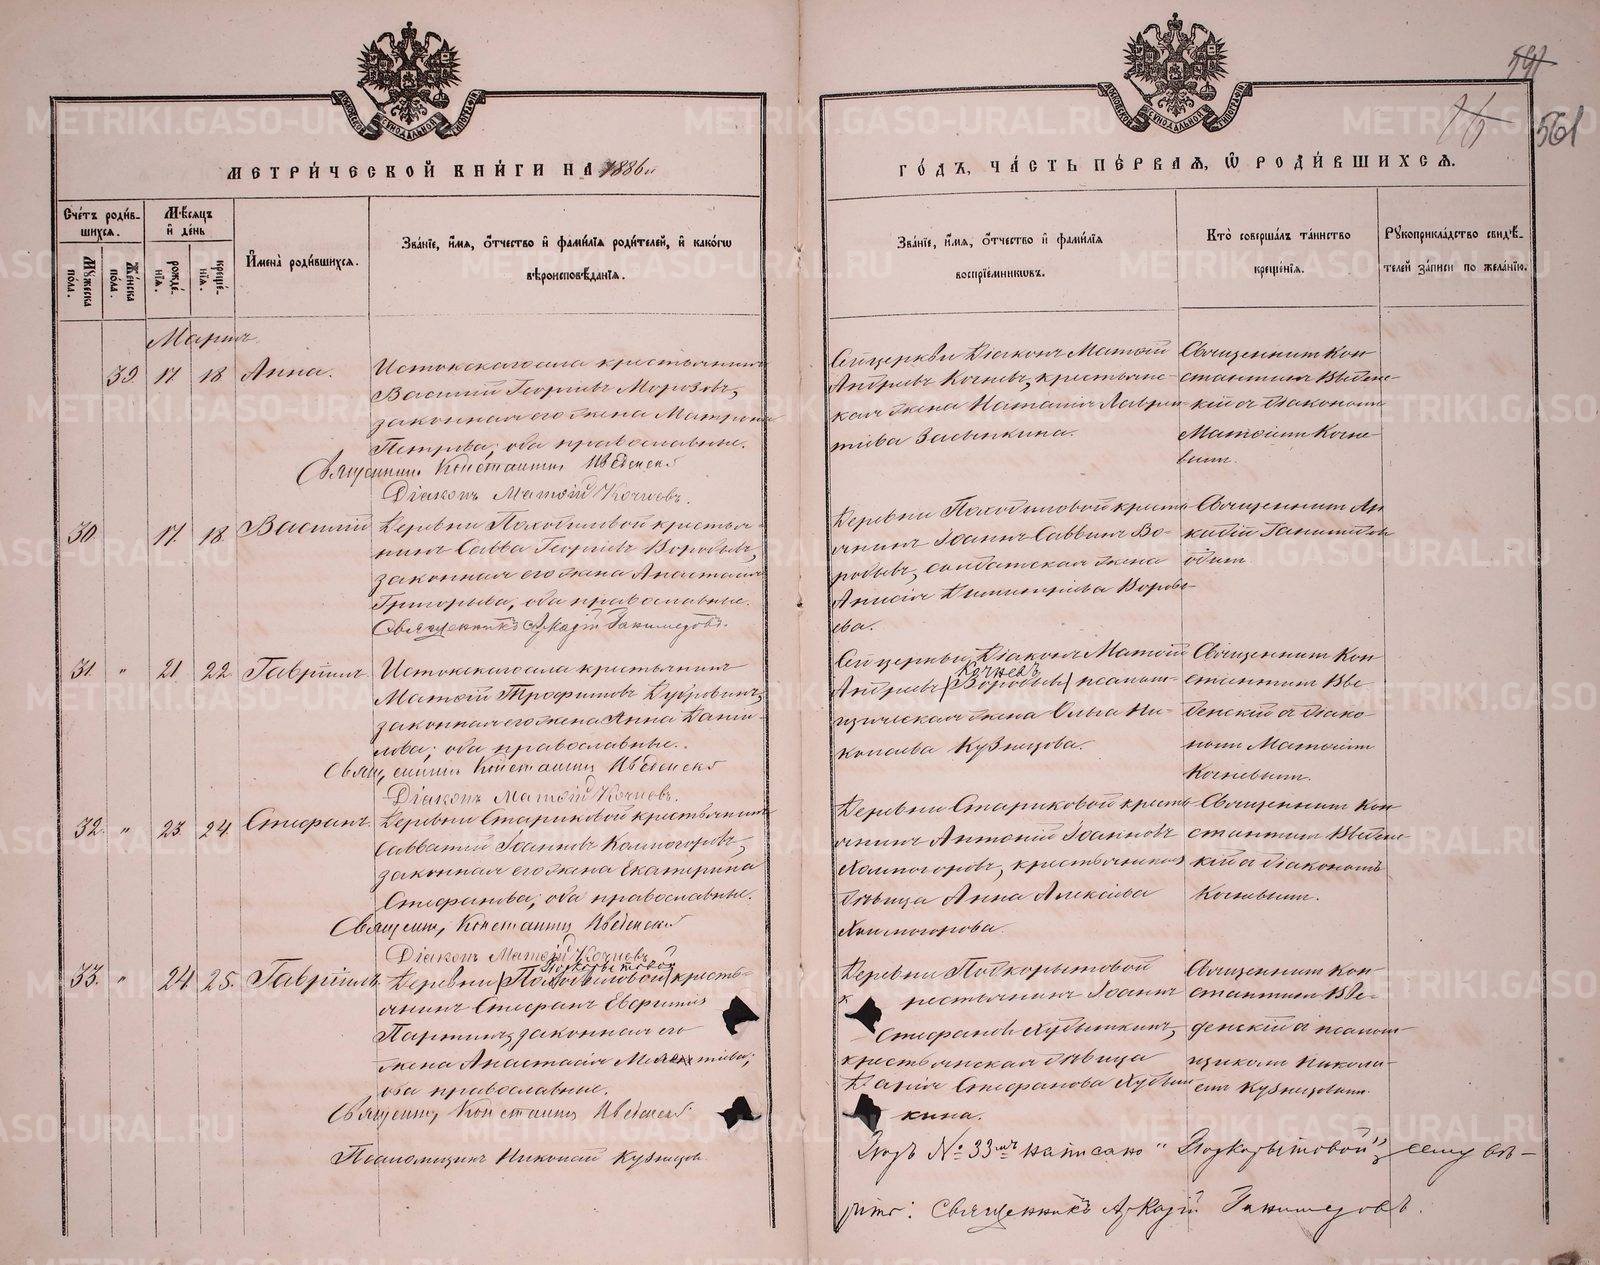 541
16
561
МЕТРИ́ЧЕСКОЙ КНИ́ГИ НА 1886й
ГО́ДЪ, ЧА́СТЬ ПЕ́РВАЯ, Ѡ РОДИ́ВШИХСЯ.
Сче́тъ роди́в-
шихся.
Мѣ́сяцъ
и҆ де́нь
Мꙋ́жеска по́ла.
Же́нска по́ла.
рожде́нїя.
креще́нїя.
И҆мена̀ роди́вшихся.
Зва́нїе, и҆́мя, ѻ҆́тчество и҆ фами́лїя роди́телей, и҆ како́гѡ
вѣроисповѣ́данїя.
Зва́нїе, и҆́мя, ѻ҆́тчество и҆ фами́лїя
воспрїе́мниковъ.
Кто̀ соверша́лъ та́инство
креще́нїя.
Рꙋкоприкла́дство свидѣ́-
телей за́писи по жела́нїю.
Мартъ.
39. 17 18 Анна.
Истокскаго села крестьянинъ
Василій Георгіевъ Морозовъ,
законная его жена Матрона
Петрова; оба православные.
Священникъ Константинъ Введенскій
Діаконъ Матѳій Кочневъ.
Сей церкви Діаконъ Матѳій
Андреевъ Кочневъ, крестьянс-
кая жена Наталія Лаврен-
тіева Засыпкина.
Священникъ Кон-
стантинъ Введенс-
кій съ діакономъ
Матѳіемъ Кочне-
вымъ.
30. 17. 18. Василій
Деревни Походиловой крестья-
нинъ Савва Георгіевъ Воробьевъ,
законная его жена Анастасія
Григорьева, оба православные.
Священникъ Аркадій Ганимедовъ.
Деревни Походиловой кресть-
янинъ Іоаннъ Саввинъ Во-
робьевъ, солдатская жена
Анисія Димитріева Воробь-
ева.
Священникъ Ар-
кадій Ганимедовъ
одинъ.
31. " 21 22 Гавріилъ
Истокскаго села крестьянинъ
Матѳій Трофимовъ Дубровинъ,
законная его жена Анна Дани-
лова; оба православные.
Священникъ Константинъ Введенскій
Діаконъ Матѳій Кочневъ.
Сей церкви Діаконъ Матѳій
Кочневъ
Андреевъ (Воробьевъ) псалом-
щическая жена Ольга Ни-
колаева Кузнецова.
Священникъ Кон-
стантинъ Вве-
денскій съ діако-
номъ Матѳіемъ
Кочневымъ.
32. " 23 24 Стефанъ.
Деревни Стариковой крестьянинъ
Савватій Іоанновъ Холмогоровъ,
законная его жена Екатерина
Стефанова; оба православные.
Священникъ Константинъ Введенскій
Діаконъ Матѳій Кочневъ
Деревни Стариковой кресть-
янинъ Антоній Іоанновъ
Холмогоровъ, крестьянская
дѣвица Анна Алексіева
Холмогорова.
Священникъ Кон-
стантинъ Введенс-
кій съ діакономъ
Кочневымъ.
33. " 24 25. Гавріилъ
Подкорытовой
Деревни (Походиловой) кресть-
янинъ Стефанъ Евграфовъ
законная его
жена Анастасія
оба православные.
Священникъ Константинъ Введенскій
Псаломщикъ Николай Кузнецовъ
Деревни Подкорытовой
крестьянинъ Іоаннъ
Стефановъ Хубышкинъ,
крестьянская дѣвица
Дарія Стефанова Хубыш-
кина.
Священникъ Кон-
стантинъ Вве-
денскій съ псалом-
щикомъ Никола-
емъ Кузнецовымъ.
Подъ № 33мъ написано "Подкорытовой", сему вѣ-
рить: Священникъ Аркадій Ганимедовъ.